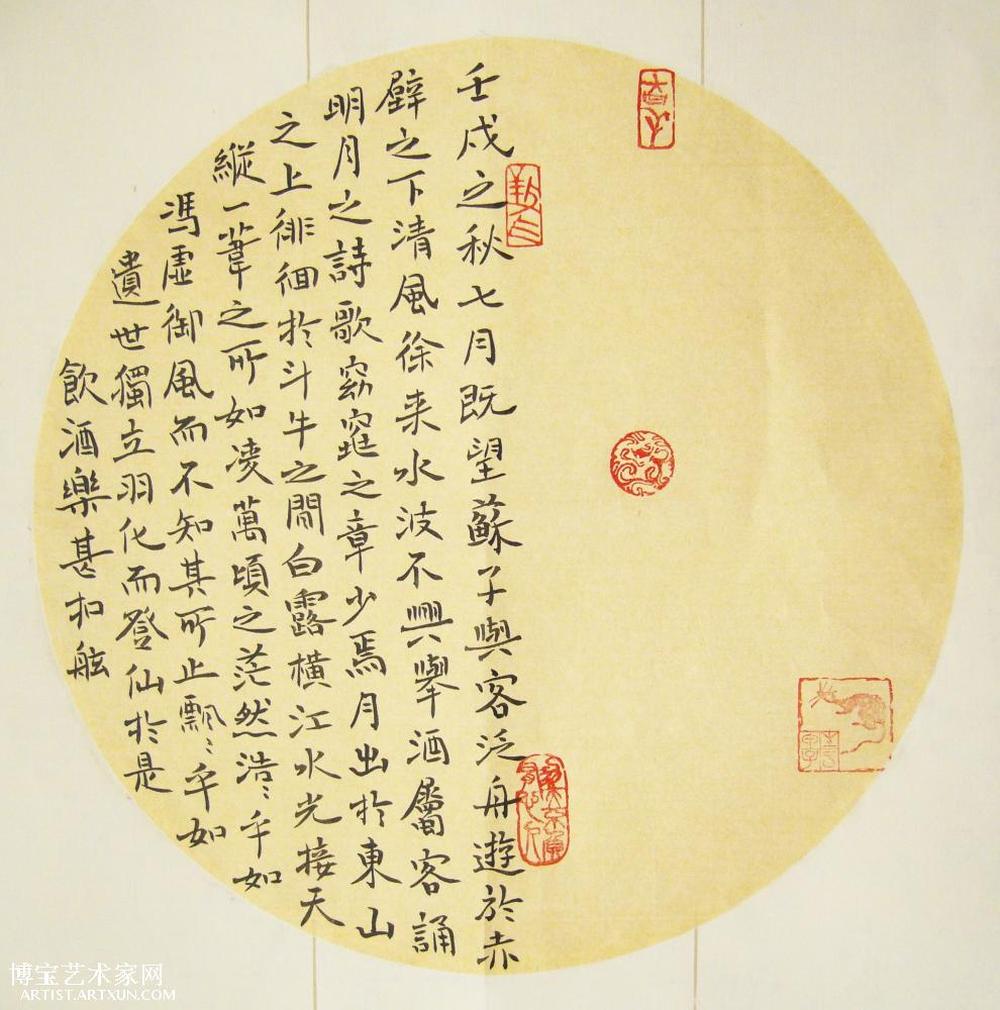 壬戌之秋七月既望蘇子與客泛舟遊於赤
壁之下清風徐来水波不興舉酒屬客誦
明月之詩歌窈窕之章少焉月出於東山
之上徘徊於斗牛之間白露橫江水光接天
縱一葦之所如凌萬頃之茫然浩〻乎如
馮虛御風而不知其所止飄〻乎如
遺世獨立羽化而登仙於是
飲酒樂甚扣舷
博宝艺术家网
ARTIST.ARTXUN.COM